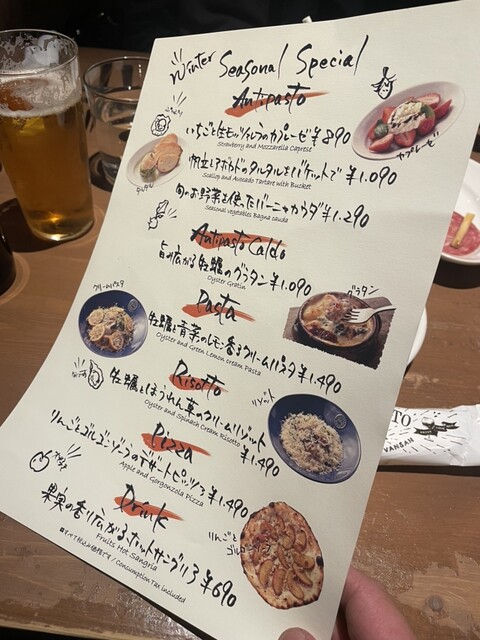 Winter Seasonal Special
Antipasto
いちごと生モッツァレラのカプレーゼ ¥890
Strawberry and Mozzarella Caprese
カプレーゼ
帆立とアボカドのタルタルをバゲットで ¥1.090
Scallop and Avocado Tartare with Bucket
タルタル
旬のお野菜を使ったバーニャカウダ ¥1.290
Seasonal vegetables Bagna Lauda
Antipasto Caldo
旨み広がる牡蠣のグラタン ¥1.090
Oyster Gratin
グラタン
Pasta
クリームパスタ
牡蠣と青菜のレモン香るクリームパスタ ¥1.490
Oyster and Green Lemon cream Pasta
Risotto
牡蠣とほうれん草のクリームリゾット ¥1.490
Oyster and Spinach Cream Risotto
リゾット
Pizza
りんごとゴルゴンゾーラのデザートピッツァ ¥1.490
Apple and Gorgonzola Pizza
りんごと
ゴルゴンゾーラ
Drink
果実の香り広がるホットサングリア ¥690
Fruits Hot Sangria
すべて税込価格です / Consumption Tax included
TO
VANSAN